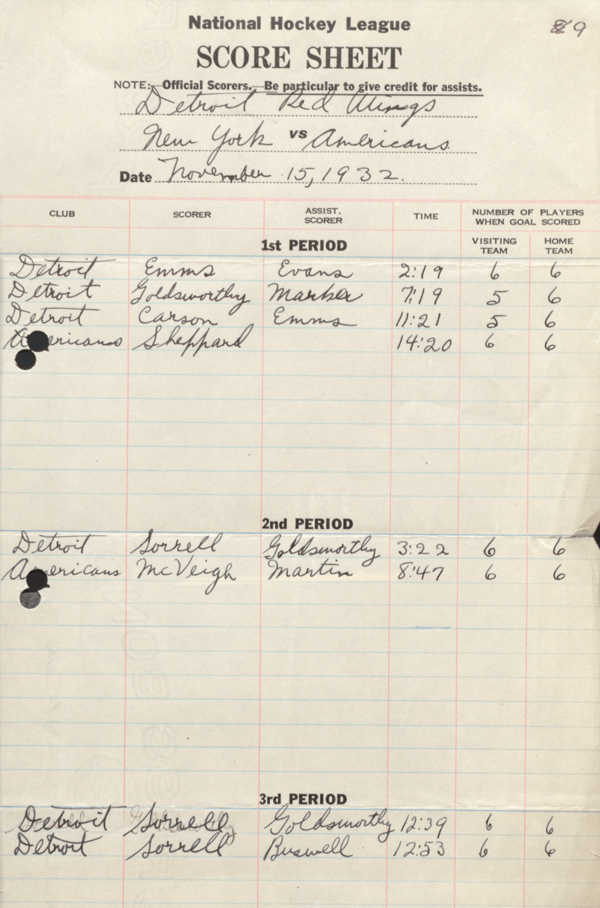 National Hockey League
89
SCORE SHEET
NOTE: Official Scorers. Be particular to give credit for assists.
Detroit Red Wings
New York vs Americans
Date November 15, 1932.
CLUB SCORER ASSIST. SCORER TIME NUMBER OF PLAYERS WHEN GOAL SCORED
VISITING TEAM HOME TEAM
1st PERIOD
Detroit Emms Evans 2:19 6 6
Detroit Goldsworthy Marker 7:19 5 6
Detroit Carson Emms 11:21 5 6
Americans Sheppard 14:20 6 6
2nd PERIOD
Detroit Sorrell Goldsworthy 3:22 6 6
Americans McVeigh Martin 8:47 6 6
3rd PERIOD
Detroit Sorrell Goldsworthy 12:39 6 6
Detroit Sorrell Buswell 12:53 6 6